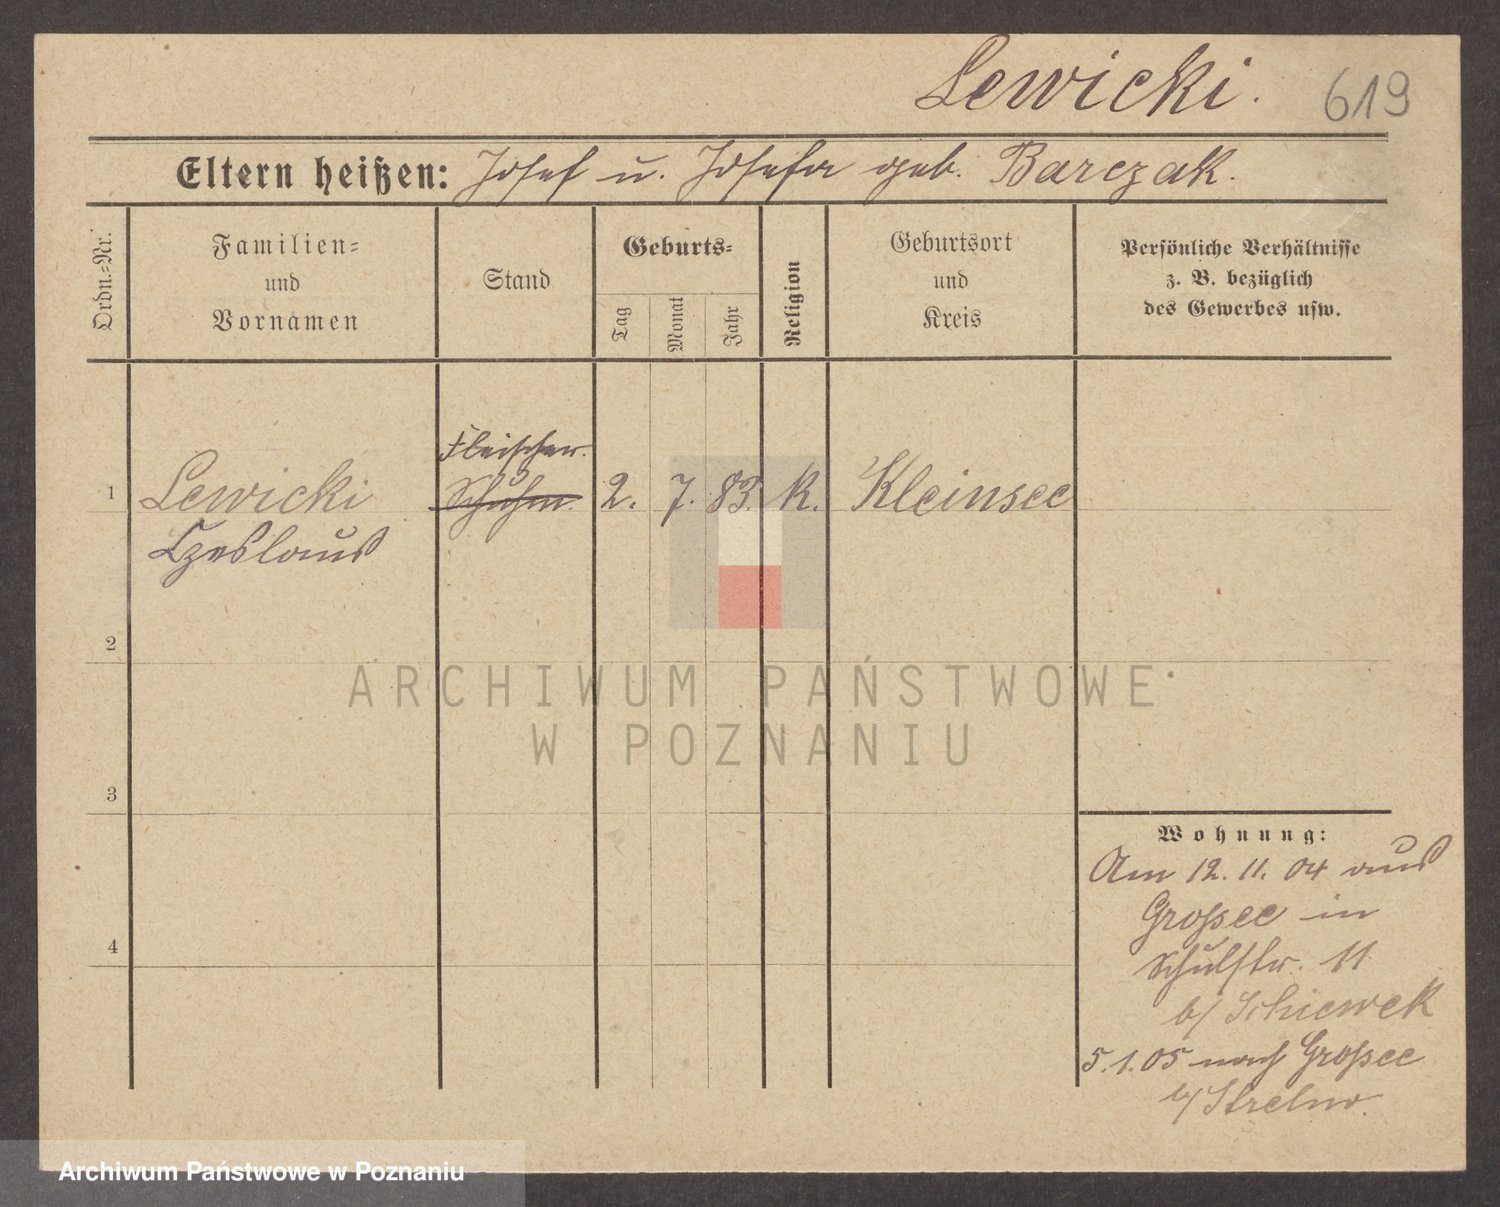 Lewicki. 619
Eltern heißen: Josef u. Josefa geb. Barczak.
Ordn.-Nr.
Familien-
und
Vornamen
Stand
Geburts-
Tag
Monat
Jahr
Religion
Geburtsort
und
Kreis
Persönliche Verhältnisse
z. B. bezüglich
des Gewerbes usw.
Fleischer.
1 Lewicki Schuhm. 2. 7. 83. K. Kleinsee
Czeslaus
2
ARCHIWUM PAŃSTWOWE
W POZNANIU
3
Wohnung:
Am 12. 11. 04 aus
Großsee in
4
Schulstr. 11
b/ Schiewek
5.1.05 nach Großsee
b/ Strelno.
Archiwum Państwowe w Poznaniu